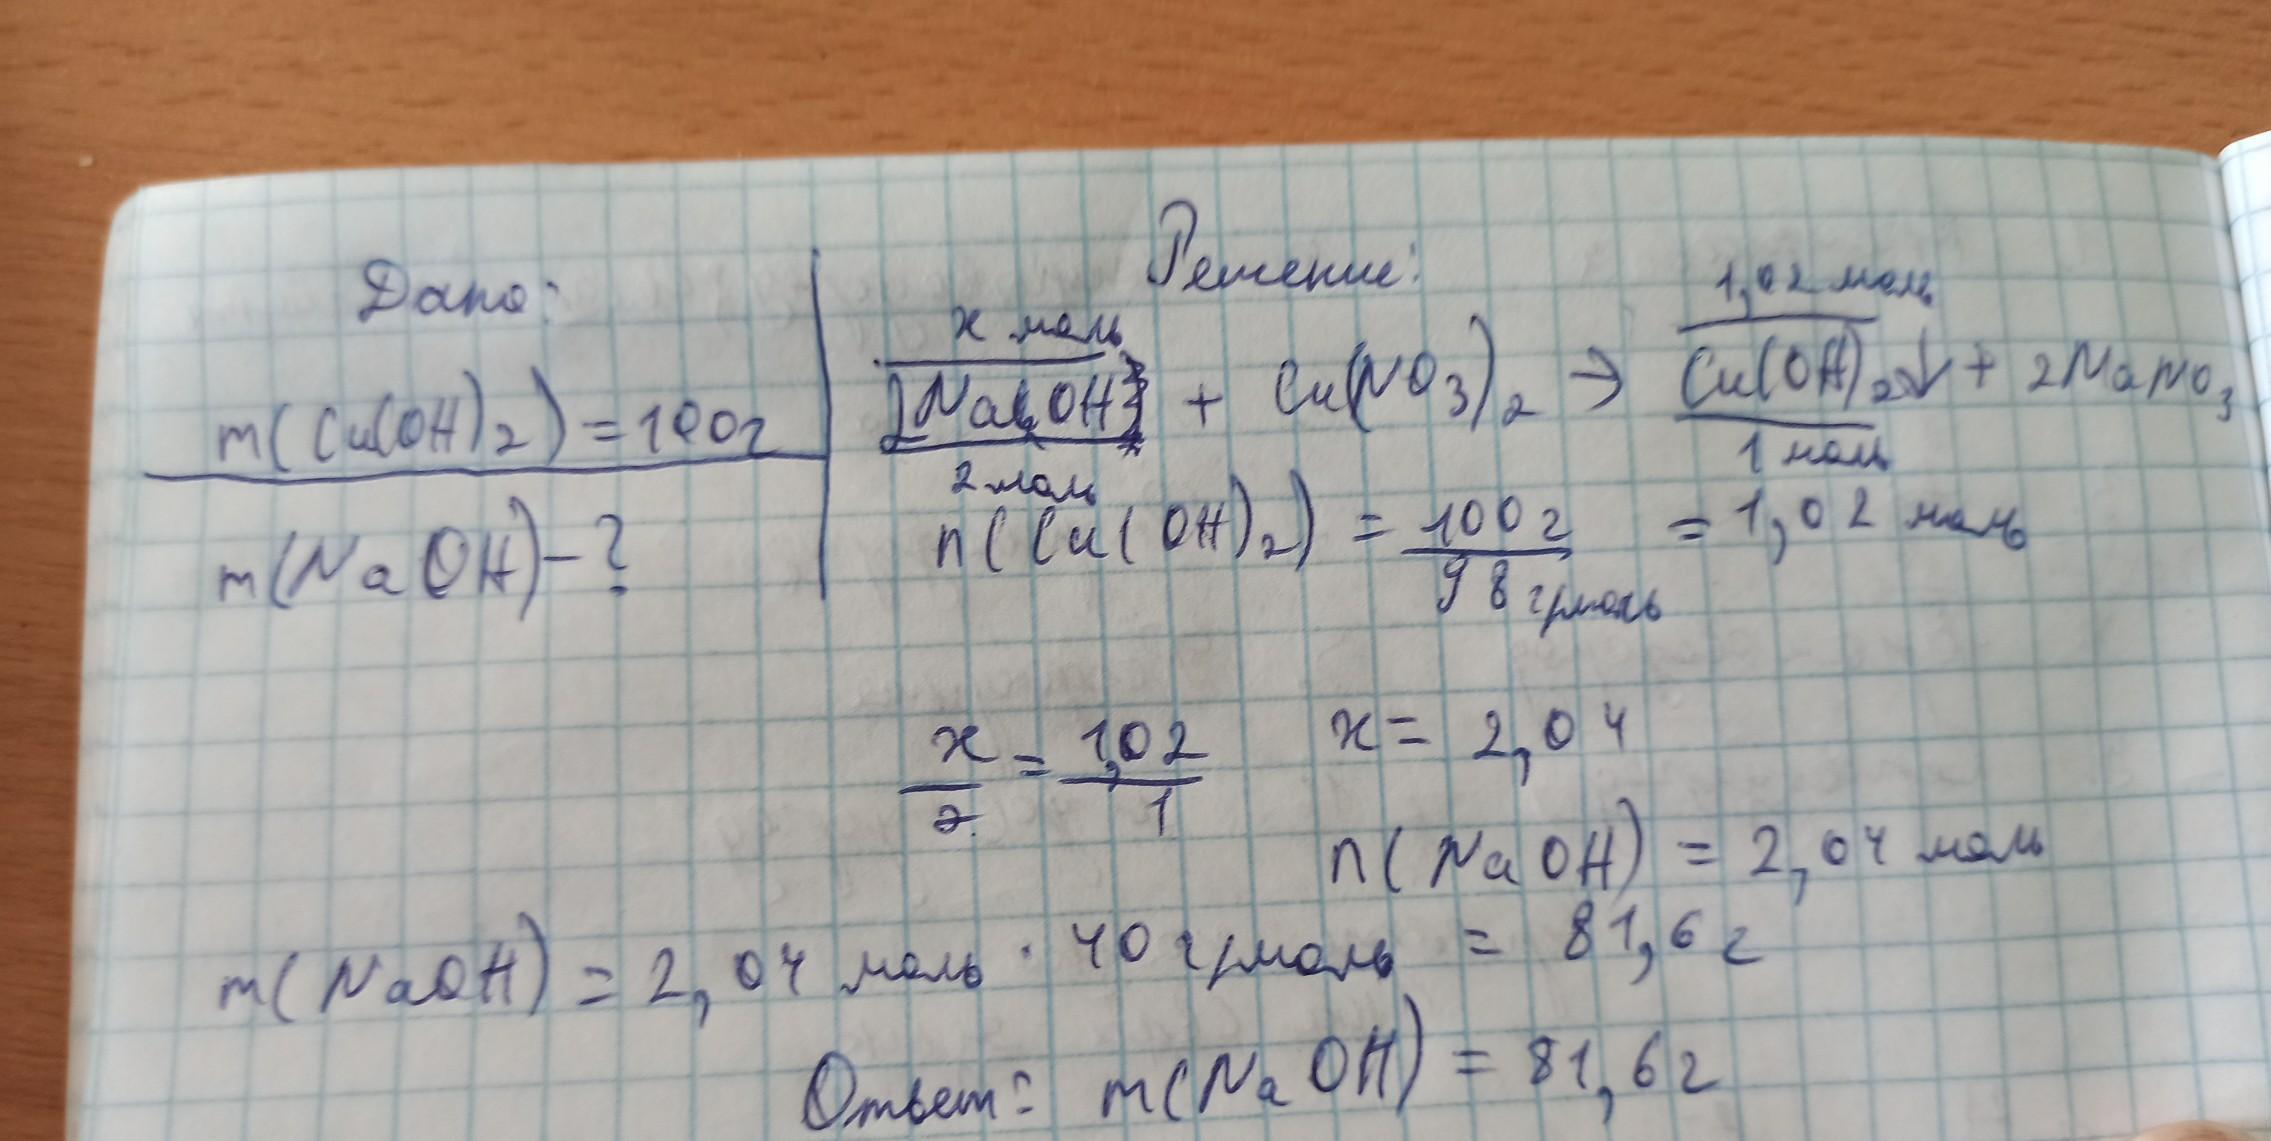 Дано:
m(Cu(OH)2) = 100г
m(NaOH) - ?
Решение:
x моль 1,02 моль
2NaOH + Cu(NO3)2 → Cu(OH)2↓ + 2NaNO3
2 моль 1 моль
n(Cu(OH)2) = 100г / 98 г/моль = 1,02 моль
x/2 = 1,02/1 x = 2,04
n(NaOH) = 2,04 моль
m(NaOH) = 2,04 моль · 40 г/моль = 81,6 г
Ответ: m(NaOH) = 81,6г